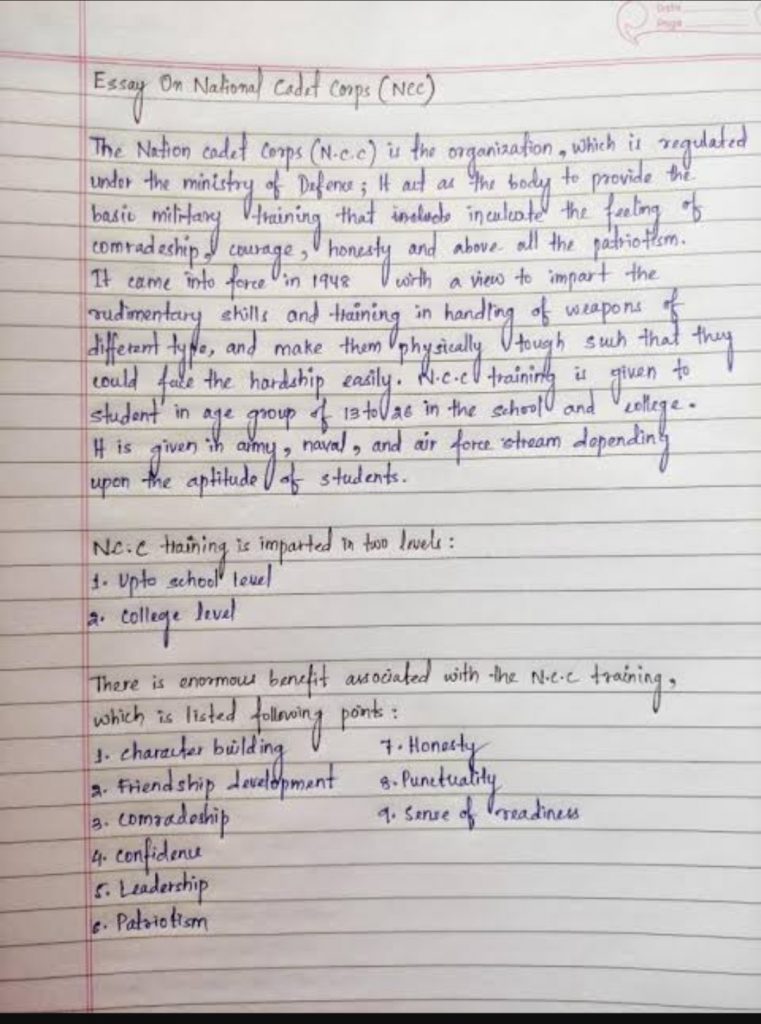 Date
Page
Essay On National Cadet Corps (NCC)
The Nation cadet Corps (N.C.C) is the organization, which is regulated
under the ministry of Defence; It act as the body to provide the
basic military training that include inculcate the feeling of
comradeship, courage, honesty and above all the patriotism.
It came into force in 1948 with a view to impart the
rudimentary skills and training in handling of weapons of
different type, and make them physically tough such that they
could face the hardship easily. N.C.C training is given to
student in age group of 13 to 26 in the school and college.
It is given in army, naval, and air force stream depending
upon the aptitude of students.
N.C.C training is imparted in two levels:
1. Upto school level
2. College level
There is enormous benefit associated with the N.C.C training,
which is listed following points:
1. character building 7. Honesty
2. Friendship development 8. Punctuality
3. comradeship 9. Sense of readiness
4. confidence
5. Leadership
6. Patriotism